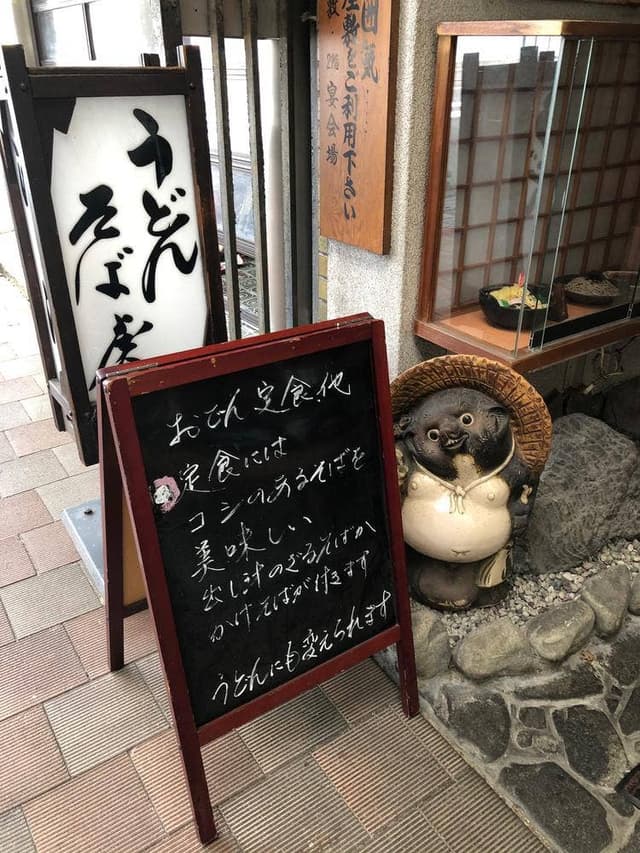 うどん
そば處
団気
座敷をご利用下さい
2階 宴会場
おでん定食、他
定食には
コシのあるそばを
美味しい
出し汁のざるそばか
かけそばが付きます
うどんにも変えられます